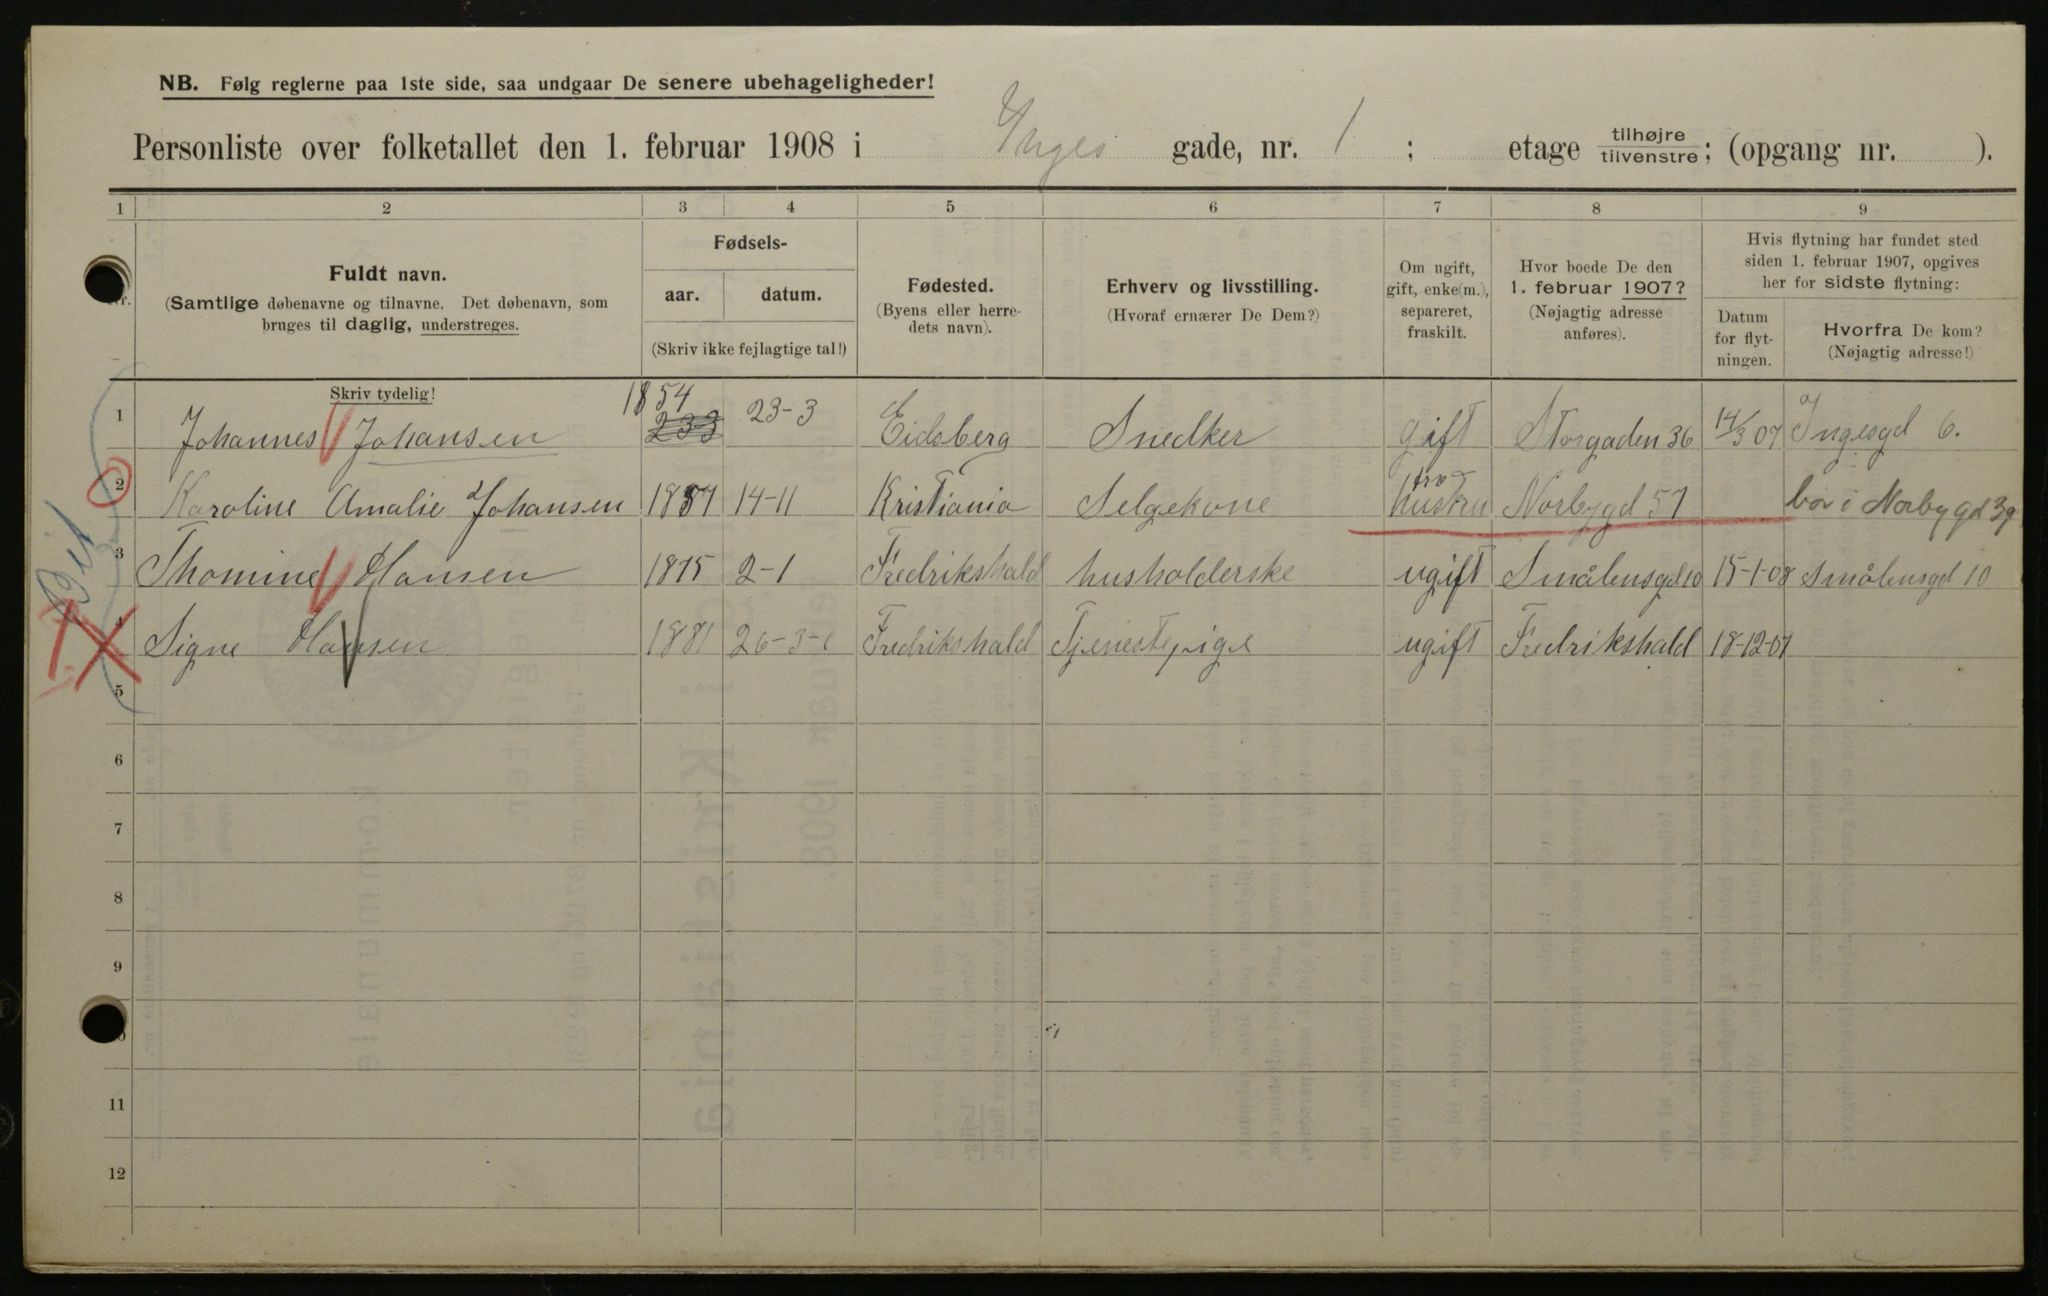 NB. Følg reglerne paa 1ste side, saa undgaar De senere ubehageligheder!
Personliste over folketallet den 1. februar 1908 i Inges gade, nr. 1 ; etage tilhøjre tilvenstre; (opgang nr. ).
1 2 3 4 5 6 7 8 9
Nr. Fuldt navn. (Samtlige døbenavne og tilnavne. Det døbenavn, som bruges til daglig, understreges.
Fødsels-
aar. datum.
(Skriv ikke fejlagtige tal!)
Fødested. (Byens eller herredets navn).
Erhverv og livsstilling. (Hvoraf ernærer De Dem?)
Om ugift, gift, enke(m.), separeret, fraskilt.
Hvor boede De den 1. februar 1907? (Nøjagtig adresse anføres).
Hvis flytning har fundet sted siden 1. februar 1907, opgives her for sidste flytning:
Datum for flytningen.
Hvorfra De kom? (Nøjagtig adresse!)
Skriv tydelig!
1 Johannes Johansen 1854 233 23-3 Eidsberg Snedker gift Storgaden 36 14/3 07 Ingesgd 6.
2 Karoline Amalie Johansen 1857 14-11 Kristiania Selgekone hustru Norbygd 57 bor i Norbygd 39
3 Thomine Hansen 1875 2-1 Fredrikshald husholderske ugift Smålensgd 10 15-1-08 Smålensgd 10
4 Signe Hansen 1881 26-3- Fredrikshald Tjenestepige ugift Fredrikshald 18-12-07
5
6
7
8
9
11
12